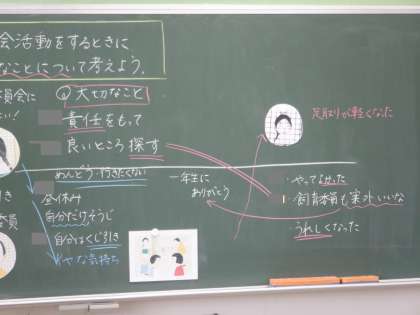 会活動をするときに、
なことについて考えよう。
員会に
い!
Q大切なこと
責任をもって
良いところ探す
足取りが軽くなった
めんどう・行きたくない
昼休み
自分だけそうじ
自分はくじ引き
やな気持ち
き
委員
一年生に
ありがとう
・やってよかった
・飼育委員も案外いいな
・うれしくなった